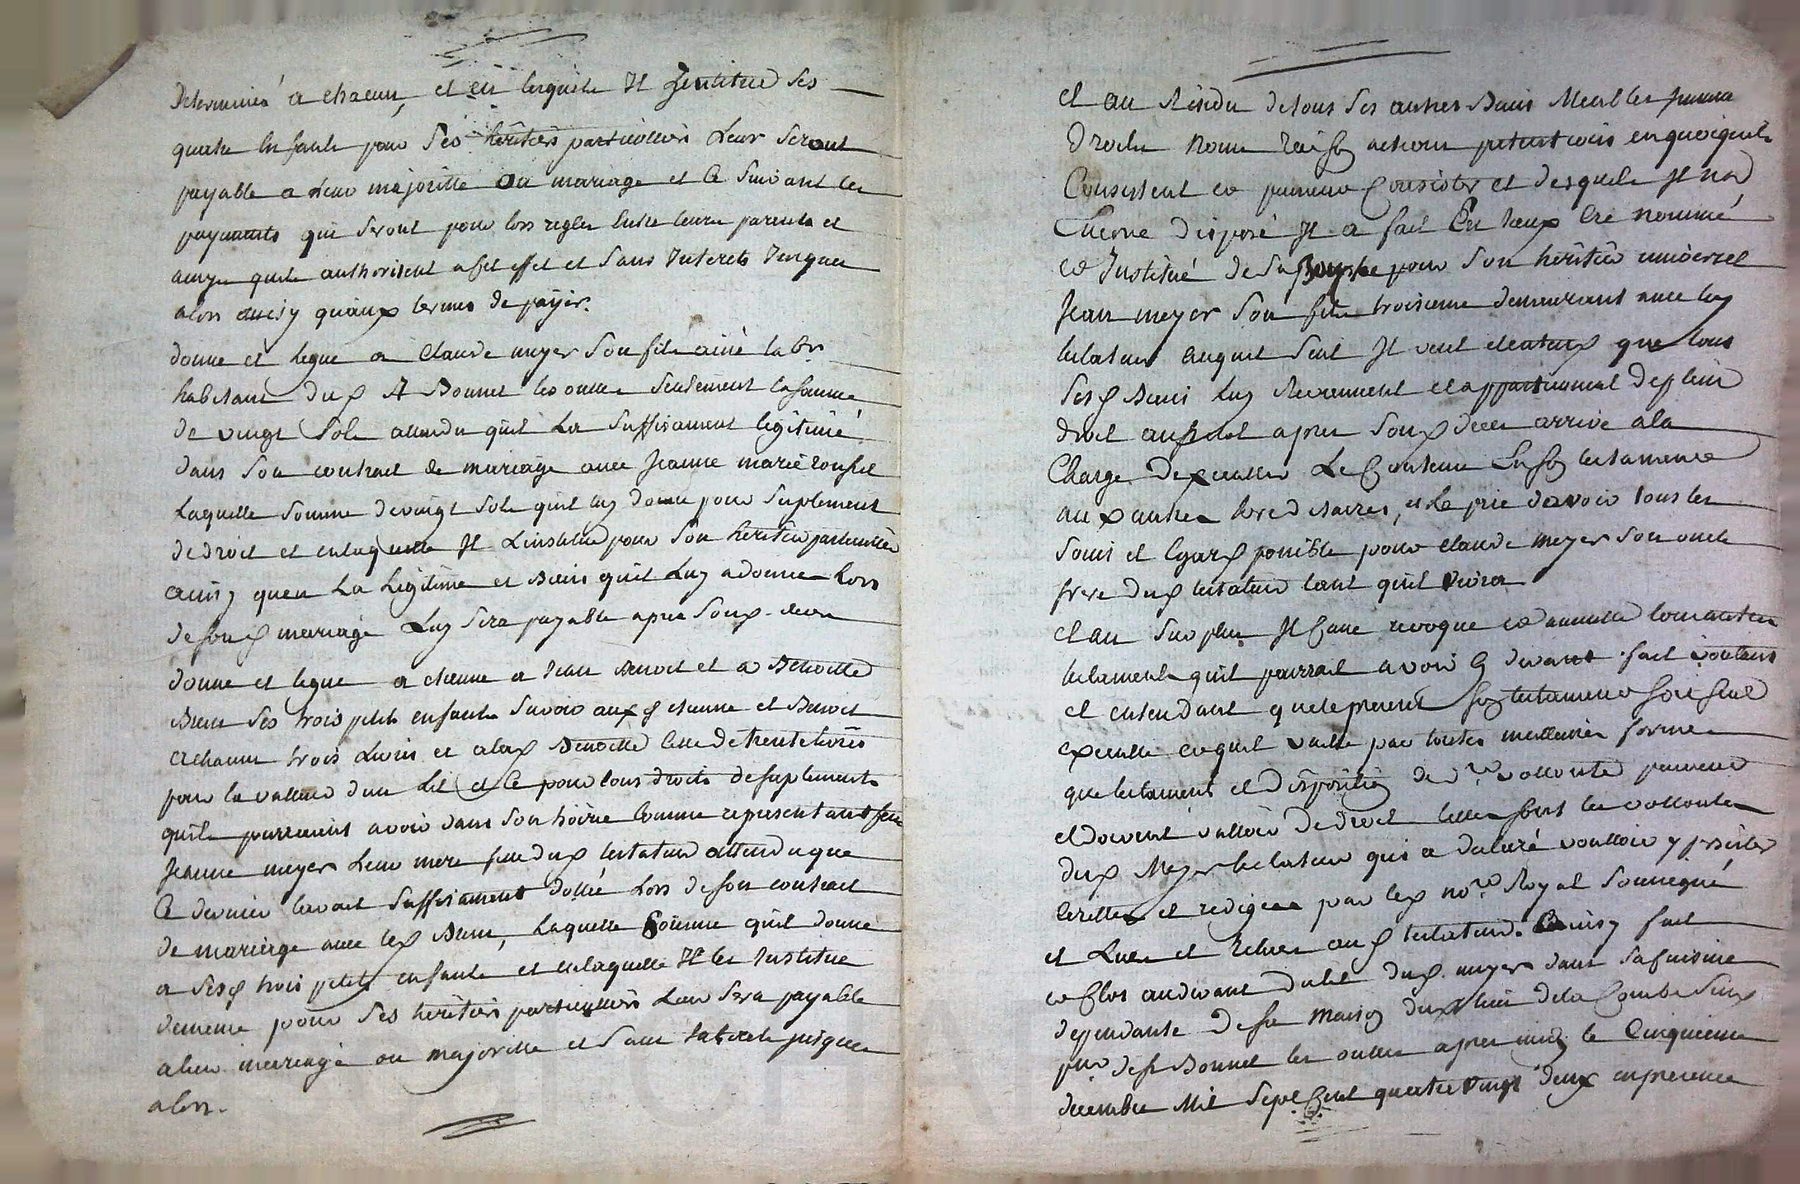 determinés a chacun, et en lesquels Il Jnstitue ses
quatre Enfants pour ses héritiers particulliers Leur seront
payable a Leur majoritté ou mariage et Ce suivant les
payments qui seront pour lors regles Entre leurs parents et
amys quils authorisent a cet effet et sans Interets Jusques
alors ainsy quaux termes de payer.
donne et legue a Claude meyer son fils ainé
habitant dud St Bonnet les oulles seulement la somme
de vingt sols attendu quil La suffisament légitimé
dans son contract de mariage avec Jeanne marie
Laquelle somme de vingt sols quil luy donne pour suplement
de droit et en laquelle Il Linstitue pour son héritier particullier
ainsy quen La Légitime et Biens quil Luy a donné Lors
de sond mariage Luy sera payable apres sond deces
donne et legue a etienne a Jean Benoit et a Benoitte
Brun ses trois petits enfants savoir auxd etienne et Benoit
a chacun trois Livres et a lad Benoitte celle de trente livres
pour la valleur dun Lit et Ce pour tous droits de suplements
quils pourroient avoir dans son hoirie Comme representants feue
Jeanne meyer Leur mere fille dud testateur attendu que
Ce dernier lavoit suffisament dottée Lors de son contract
de mariage avec led Brun, Laquelle somme quil donne
a sesd trois petits enfants et en laquelle Il les Institue
de meme pour ses héritiers particulliers Leur sera payable
a leur mariage ou majoritte et sans Interets jusques
alors.
et au Résidu de tous ses autres Biens Meubles Immeubles
droits noms raison actions pretentions en quoi quils
Consistent et puissent Consister et desquels Il n'a
Encore disposé Il a fait Créé nommé
et Institué de sa Bouche pour son héritier universel
Jean meyer son fils troisieme demeurant avec led
testateur auquel seul Il veut et entend que tous
sesd Biens luy Reviennent et appartiennent de plein
droit aussitot apres sond deces arrivé a la
Charge dexecuter Le Contenu En son testament
aux autres hereditaires, et Le prie davoir tous les
soins et Egard possible pour claude meyer son oncle
frere dud testateur tant quil vivra
et au surplus Il Casse revoque et annulle tous autres
testaments quil pourroit avoir cy devant fait voulant
et entendant que le present son testament soit seul
executté et quil vaille par toutes meilleures formes
que testament et disposition de dre vollonté peuvent
et doivent valloir de droit telles sont les vollontés
dud Meyer testateur qui a declaré voulloir y persister
Ecrittes et redigées par led nore Royal soussigné
et Lues et Relues aud testateur. Ainsy fait
et Clos au devant du lit dud meyer dans sa cuisine
dependante de sa maison dud lieu de la Combe susd
psse de St Bonnet les oulles apres midy le Cinquieme
decembre Mil Sept Cent quatre vingt deux en presence